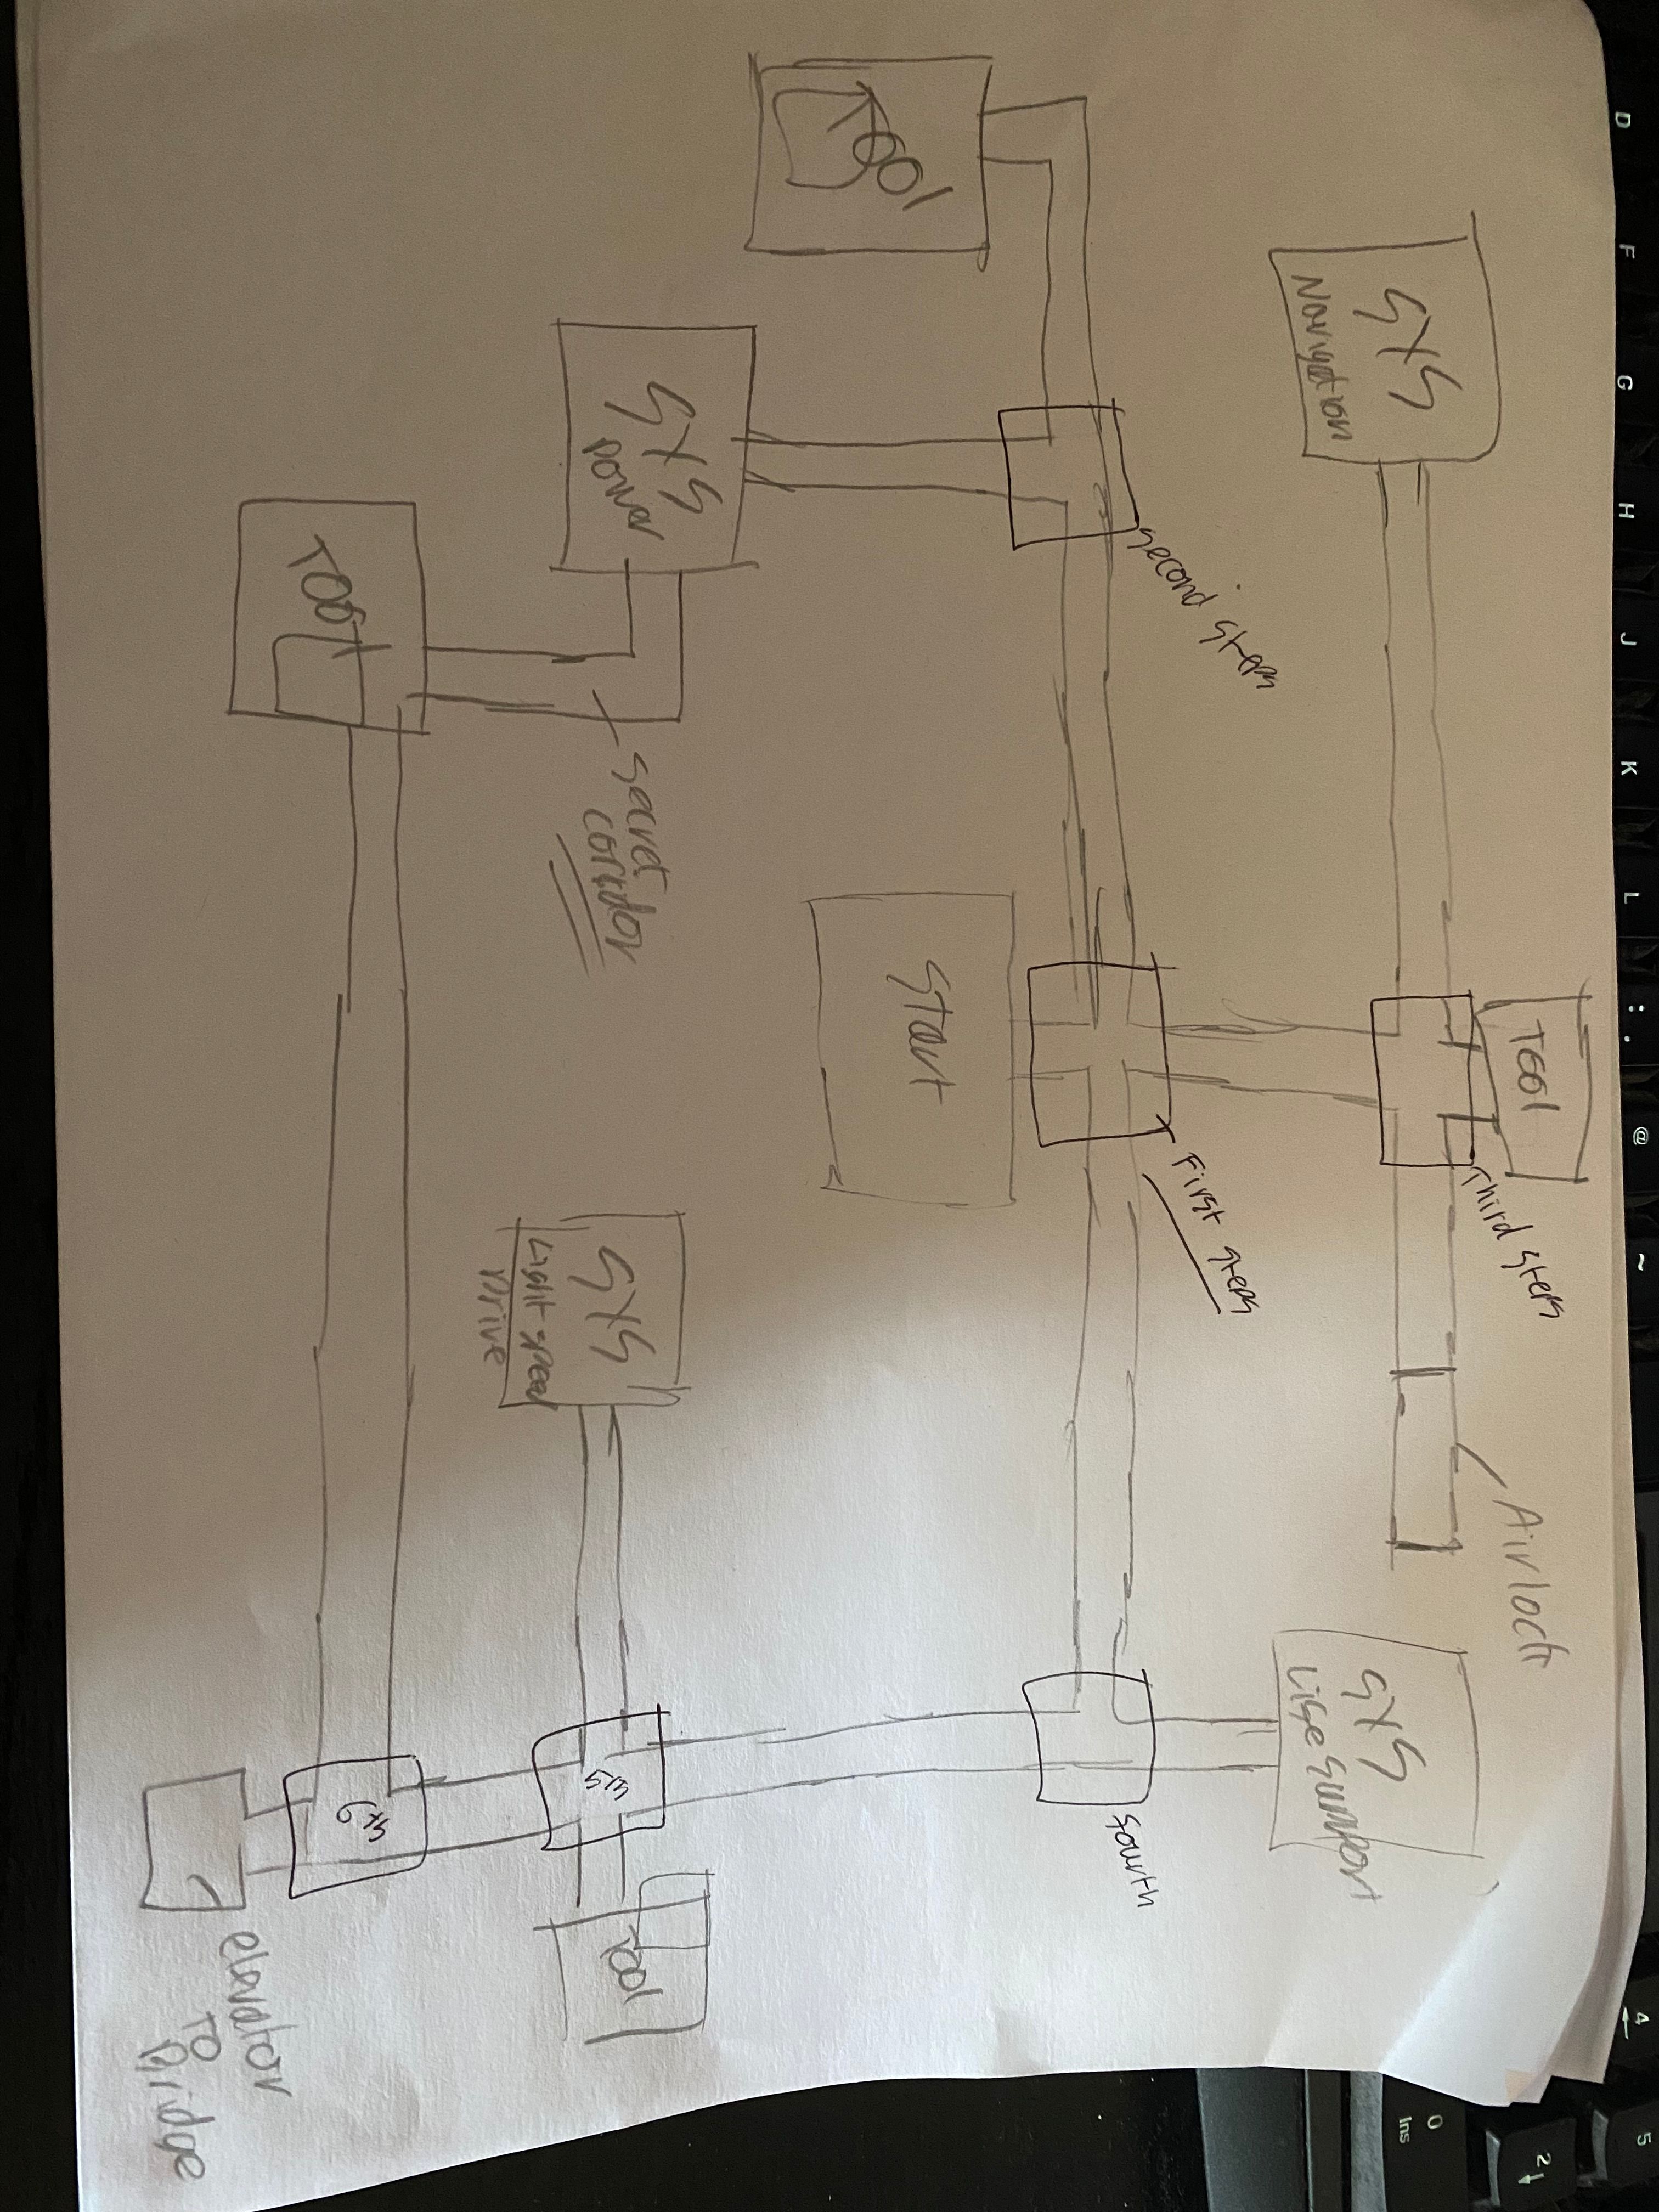 D F G H J K L : . @ ~ 4 5
←
2 ↓
0
Ins
TOOl
Third Steps
Airlock
SYS
Navigation
SYS
Life Support
Second Steps
First steps
fourth
Start
TOOl
SYS
Power
Secret
coridor
SYS
Light speed
Drive
5th
TOOl
TOOl
6th
elevator
TO
Bridge